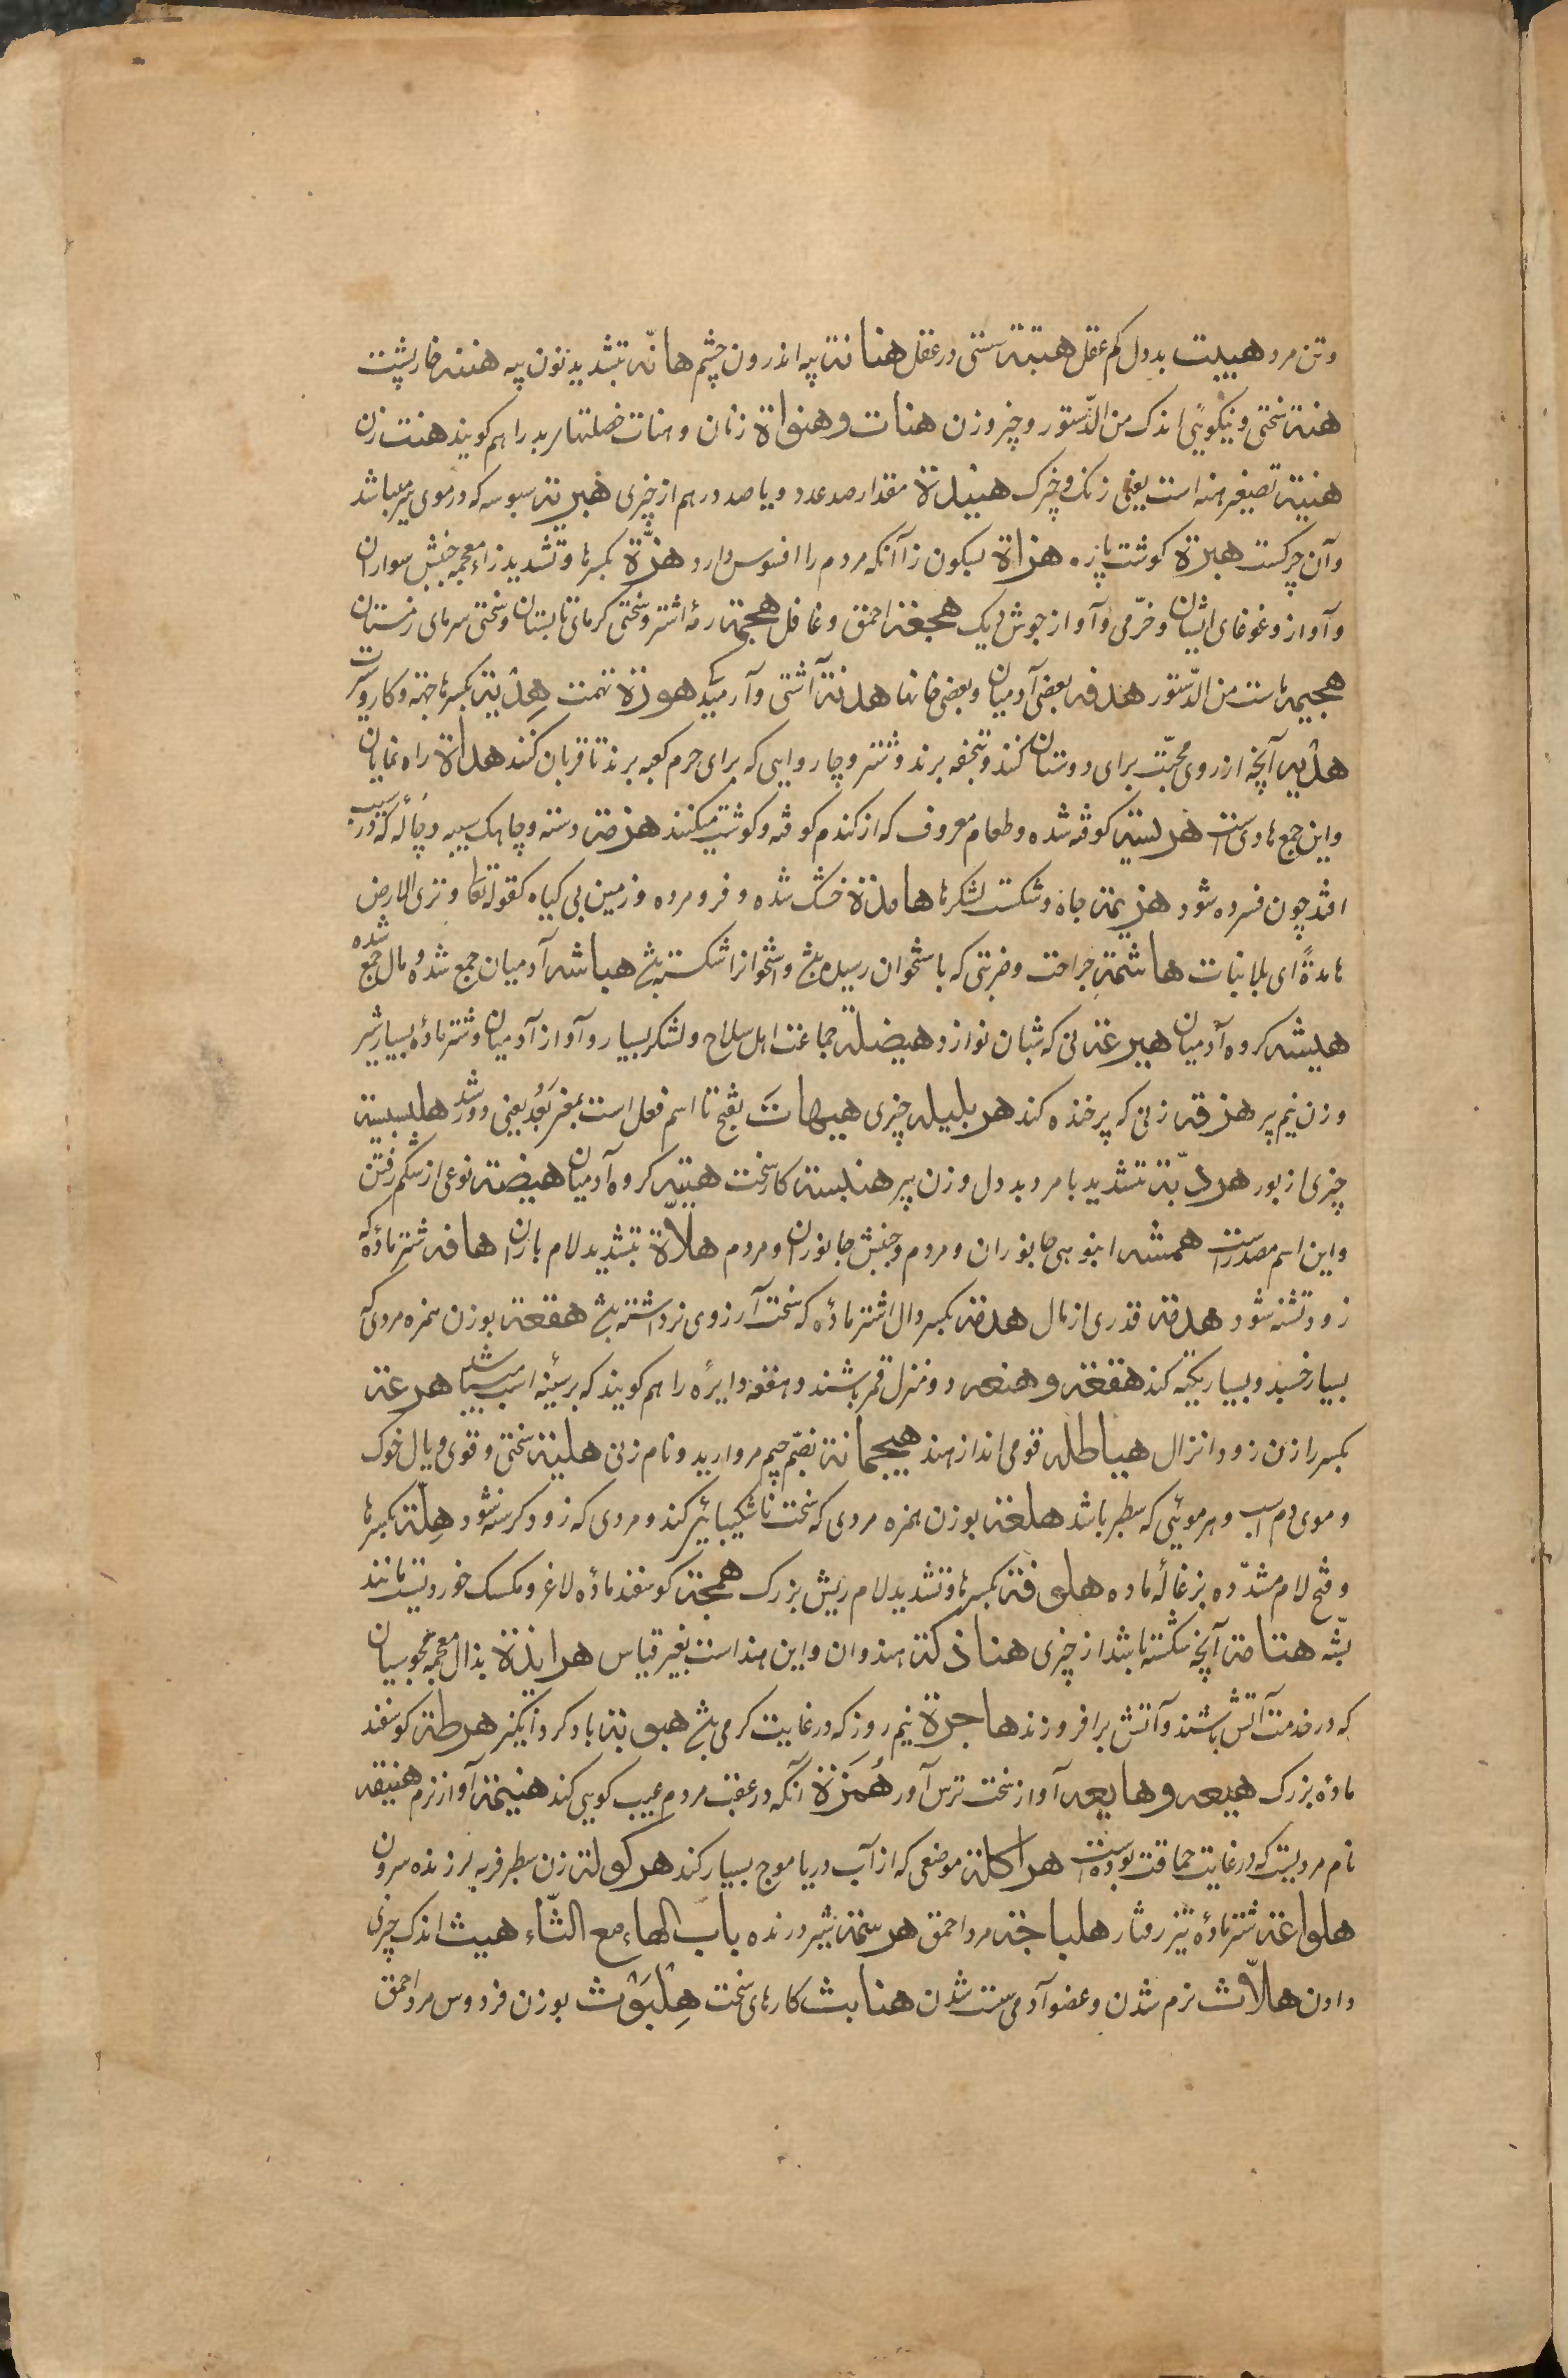 وتن مرد هبیت بددل کم عقل هبتة سستی در عقل هنانة پیه اندرون چشم هانّه بتشدید نون پیه هننه خارپشت
هنة سختی و نیکویی اندک من الدّستور و چیز و زن هنات و هنواة زنان و هنات خصلتهاء بد را هم کویند هنت زن
هنیة تصغیر هنه است یعنی زنک و چیزک هنیدة مقدار صد عدد و یا صد درهم از چیزی هبریة سبوسه که در موی سر میباشد
و آن چرکست هبرة کوشت پاره هزاة بسکون زا آنکه مردم را افسوس دارد هزّة بکسر ها و تشدید زاء معجمه جنبش سواران
و آواز و غوغای ایشان و خرّمی و آواز جوش دیک هجعة احمق و غافل هجمة رمهٔ اشتر و سختی کرمای تابستان و سختی سرمای زمستان
هجیمه ماست من الدّستور هدفه بعضی آدمیان و بعضی خانها هدنة آشتی و آرمید هوذة تهمت هِدیة بکسر ها جهة و کار و سیرت
هدیه آنچه از روی محبّت برای دوستان کنند و تحفه برند و شتر و چاروایی که برای حرم کعبه برند تا قربان کنند هداة راه نمایان
و این جمع هادی است هریسة کوفته شده و طعام معروف که از کندم کوفته و کوشت میکنند هزمة دسته و چاهک سیبه و چاله که در سیب
افتد چون فسرده شود هزیمة چاه و شکست لشکرها هامدة خشک شده و فرو مرده و زمین بی کیاه کقوله تعا و تری الارض
هامدةً ای بلا نبات هاشمة جراحت و ضربتی که باستخوان رسیده باشد و استخوانرا شکسته باشد هباشه آدمیان جمع شده و مال جمع شده
هیشه کروه آدمیان هیرعة نی که شبان نوازد هیضلة جماعت اهل سلاح و لشکر بسیار و آواز آدمیان و شتر مادهٔ بسیار شیر
و زن نیم پیر هزقه زنی که پر خنده کند هربلیله چیزی هیهاتَ بفتح تا اسم فعل است بمعنی بَعُدَ یعنی دور شد هلبسیة
چیزی از بور هردبّة بتشدید با مرد بددل و زن پیر هنبسة کار سخت هبیّه کروه آدمیان هیضة نوعی از شکم رفتن
و این اسم مصدر است همشه انبوهی جانوران و مردم و جنبش جانوران و مردم هلاّة بتشدید لام باران هافه شتر ماده که
زود تشنه شود هدمة قدری از مال هدمة بکسر دال اشتر ماده که سخت آرزوی نر داشته باشد هقعة بوزن همزه مردی که
بسیار خسبد و بسیار تکیه کند هقعة و هنعه دو منزل قمر باشند و هقعه دایره را هم کویند که بر سینه اسب میباشد هرعة
بکسر را زن زود انزال هیاطله قومی اند از هند هیجمانة بضمّ جیم مروارید و نام زنی هلبة سختی و قوی و یال خوک
و موی دم اسب و هر مویی که سطبر باشد هلعة بوزن همزه مردی که سخت ناشکیبایی کند و مردی که زود کرسنه شود هِلّعة بکسر ها
و فتح لام مشدّده بزغالهٔ ماده هلوفة بکسر ها و تشدید لام ریش بزرک همجة کوسفند مادهٔ لاغر و مکسک خوردیست مانند
پشه هتامة آنچه شکسته باشد از چیزی هنادکة هندوان و این هند است بغیر قیاس هرابذة بذال معجمه مجوسیان
که در خدمت آتش باشند و آتش برافروزند هاجرة نیم روز که در غایت کرمی باشد هبوبة باد کرد انکیز هرطة کوسفند
مادهٔ بزرک هیعه و هایعه آواز سخت ترس آور هُمَزة آنکه در عقب مردم عیب کویی کند هنیمة آواز نرم هنبیقه
نام مردیست که در غایت حماقت بوده است هراکلة موضعی که از آب دریا موج بسیار کند هرکولة زن سطبر فربه لرزنده سرون
هلواعة شتر مادهٔ تیز رفتار هلباجة مرد احمق هرسمة شیر درنده باب الهاء مع الثّاء هیث اندک چیزی
دادن هلاّث نرم شدن و عضو آدمی سست شدن هنابث کارهای سخت هِلْبَوْث بوزن فردوس مرد احمق